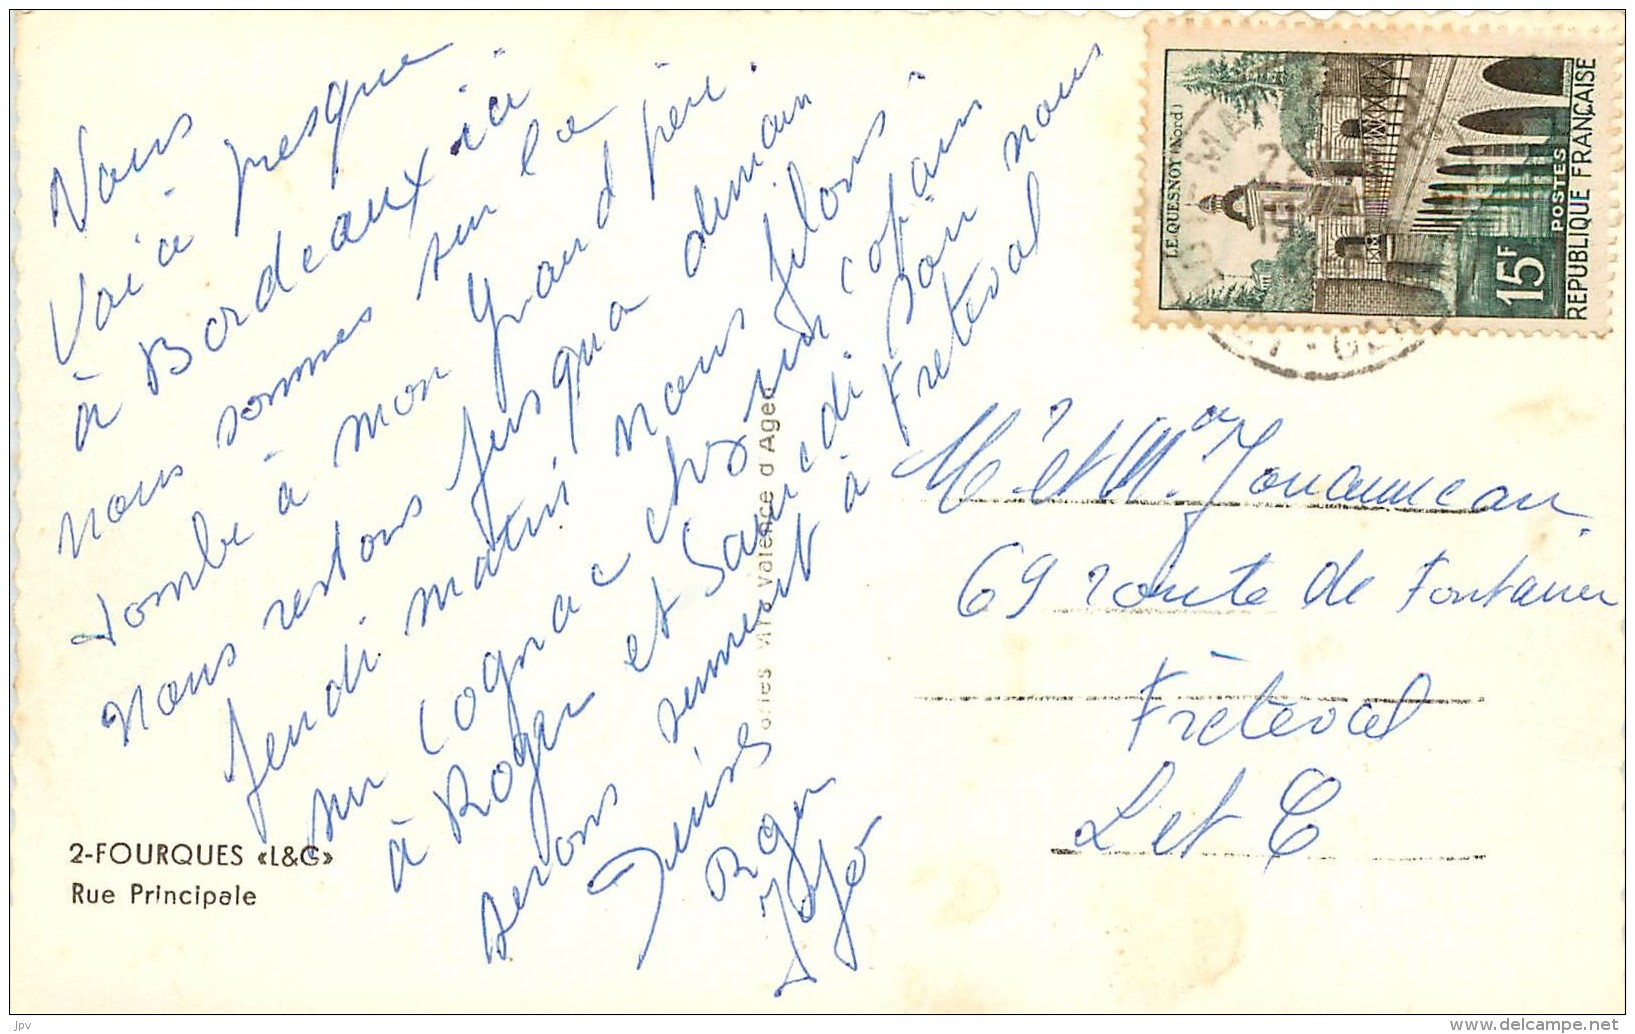 Nous
Voici presque
à Bordeaux ici
nous sommes sur la
tombe à mon grand père.
Nous restons jusqua demain
jeudi matin nous filons
sur Cognac chez un copain
à Roger et Samedi soir nous
serons surement à Freteval
Roger
Jojo
2-FOURQUES «L&G»
Rue Principale
Valence d'Agen
LE QUESNOY (Nord)
15F
POSTES
REPUBLIQUE FRANÇAISE
Mr et Mme Jouanneau
69 route de Fontaine
Fréteval
L et C
jpv
www.delcampe.net